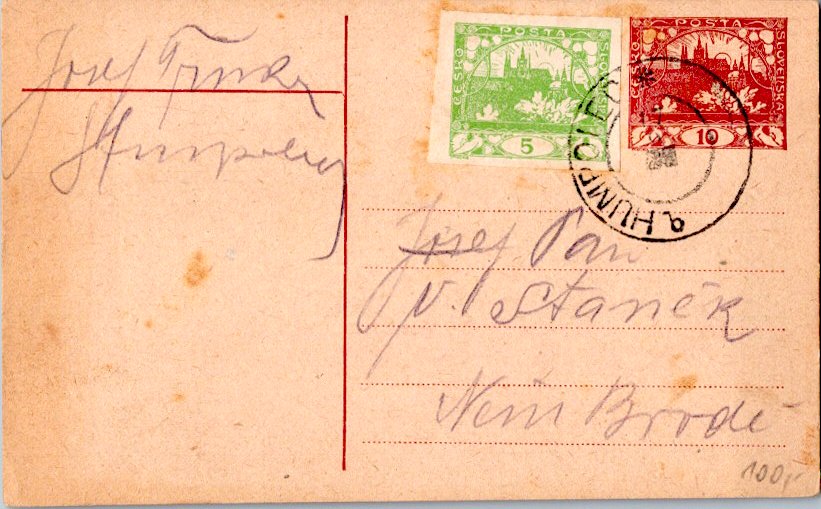 Josef
ČESKO POSTA SLOVENSKÁ
5
ČESKO POSTA SLOVENSKÁ
10
HUMPOLEC * a
Josef Pan
V. Staněk
Něm Brodě
100,-